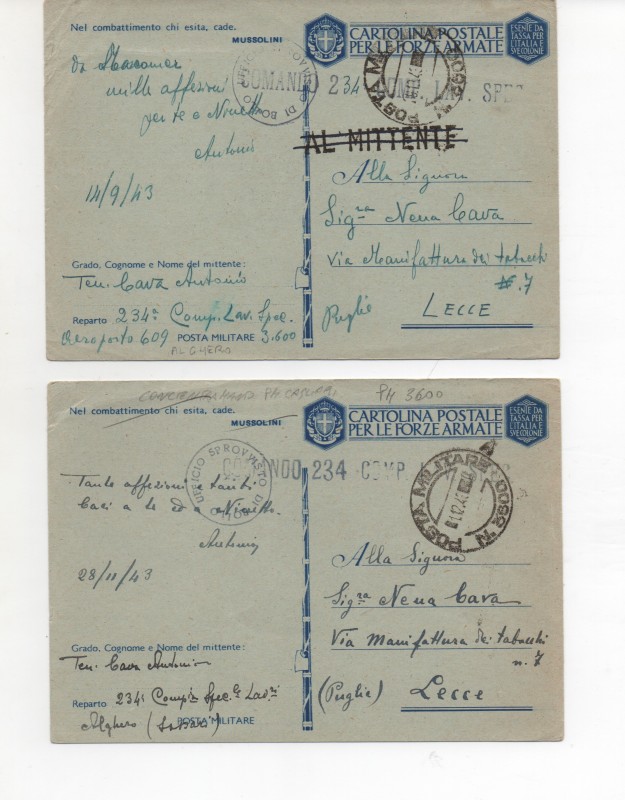 Nel combattimento chi esita, cade.
MUSSOLINI
CARTOLINA POSTALE
PER LE FORZE ARMATE
ESENTE DA
TASSA PER
L'ITALIA E
SVE COLONIE
UFFICIO SPROVVISTO DI BOLLO
COMANDO 234 COMP. LAV. SPEC
POSTA MILITARE N. 3600
AL MITTENTE
da Macomer
mille affezioni
per te e Ninetto
Antonio
14/9/43
Alla Signora
Sig.ra Nena Cava
Via Manifattura dei tabacchi
N. 7
Puglie
LECCE
Grado, Cognome e Nome del mittente:
Ten. Cava Antonio
Reparto 234a Comp. Lav. Spec.
Aeroporto 609 POSTA MILITARE 3.600
ALGHERO
PM 3600
Nel combattimento chi esita, cade.
MUSSOLINI
CARTOLINA POSTALE
PER LE FORZE ARMATE
ESENTE DA
TASSA PER
L'ITALIA E
SVE COLONIE
UFFICIO SPROVVISTO DI BOLLO
COMANDO 234 COMP.
POSTA MILITARE N. 3600
Tante affezioni e tanti
baci a te ed a Ninetto
Antonio
28/11/43
Alla Signora
Sig.ra Nena Cava
Via Manifattura dei tabacchi
n. 7
(Puglie) Lecce
Grado, Cognome e Nome del mittente:
Ten. Cava Antonio
Reparto 234a Comp. Spec. Lav.ri
Alghero (Sassari) POSTA MILITARE